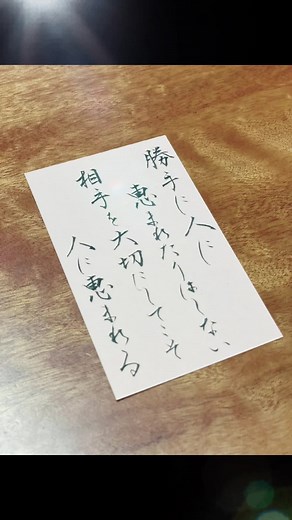 勝手に人に
恵まれたりはしない
相手を大切にしてこそ
人に恵まれる